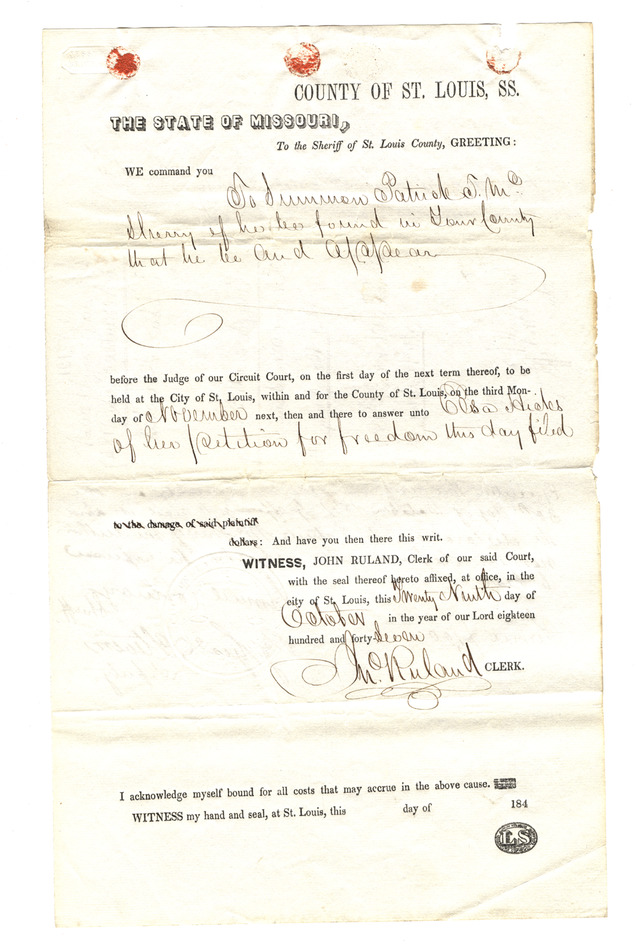 COUNTY OF ST. LOUIS, SS.
THE STATE OF MISSOURI,
To the Sheriff of St. Louis County, GREETING:
WE command you
To Summon Patrick T. Mc
Sherry if he be found in Your County
that he be and Appear
before the Judge of our Circuit Court, on the first day of the next term thereof, to be
held at the City of St. Louis, within and for the County of St. Louis, on the third Mon-
day of November next, then and there to answer unto
of her petition for freedom this day filed
to the damage of said plaintiff
dollars: And have you then there this writ.
WITNESS, JOHN RULAND, Clerk of our said Court,
with the seal thereof hereto affixed, at office, in the
city of St. Louis, this Twenty Ninth day of
October in the year of our Lord eighteen
hundred and forty-Seven
Jno. Ruland CLERK.
I acknowledge myself bound for all costs that may accrue in the above cause.
WITNESS my hand and seal, at St. Louis, this day of 184
LS